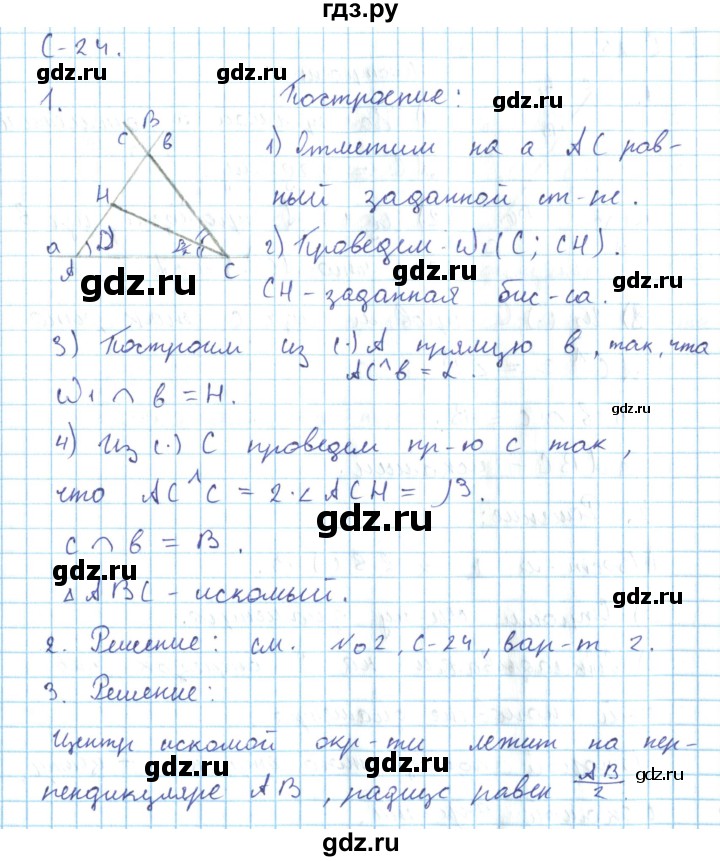 гдз.ру
С-24.
gdz.ru
gdz.ru
1.
Построение:
gdz.ru
gdz.ru
C B
в
1) Отметим на а АС рав-
H
ный заданной ст-не.
а
А
С
2) Проведем w₁(C; CH).
gdz.ru
gdz.ru
CH - заданная бис-са.
3) Построим из (·) А прямую в, так, что
AC^в = α.
w₁ ∩ в = H.
gdz.ru
4) Из (·) С проведем пр-ю с так,
что AC^C = 2·∠ACH = β.
gdz.ru
с ∩ в = B.
gdz.ru
gdz.ru
△ABC - искомый.
2. Решение: см. №2, С-24, вар-т 2.
3. Решение:
Центр искомой окр-ти лежит на пер-
gdz.ru
gdz.ru
gdz.ru
пендикуляре AB, радиус равен AB/2.
gdz.ru
gdz.ru